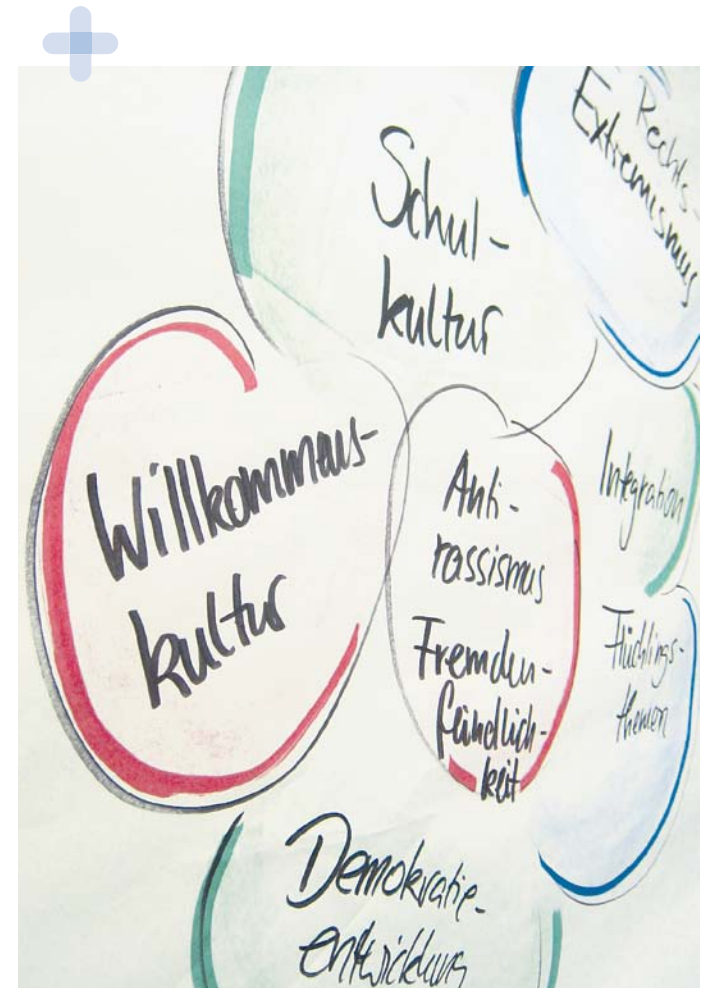 Schul-
kultur
Rechts-
Extremismus
Willkommens-
kultur
Anti-
rassismus
Fremden-
feindlich-
keit
Integration
Flüchtlings-
themen
Demokratie-
entwicklung